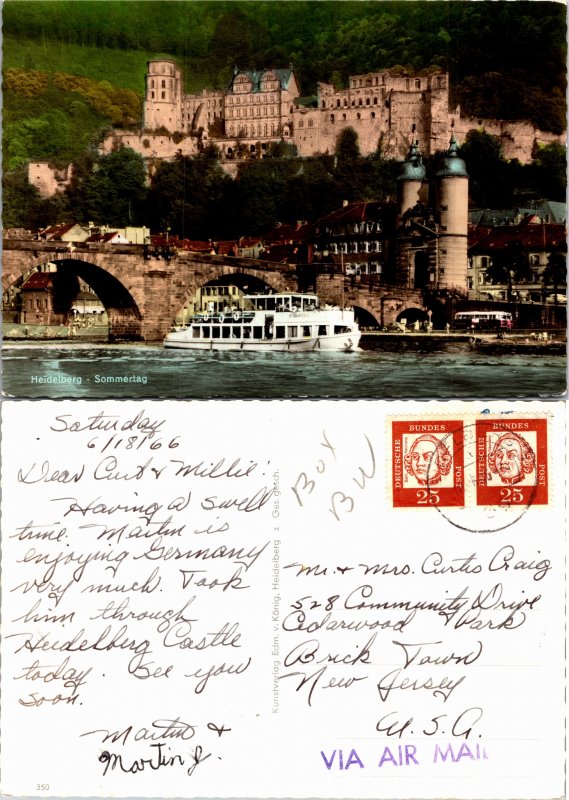 Heidelberg - Sommertag
Saturday
6/18/66
Dear Curt & Millie:
Having a swell
time. Martin is
enjoying Germany
very much. Took
him through
Heidelberg Castle
today. See you
soon.
Martin &
Martin J.
350
Kunstverlag Edm. v. König, Heidelberg Ges. gesch.
DEUTSCHE BUNDES POST
25
DEUTSCHE BUNDES POST
25
Mr. + Mrs. Curtis Craig
528 Community Drive
Cedarwood Park
Brick Town
New Jersey
U.S.A.
VIA AIR MAIL